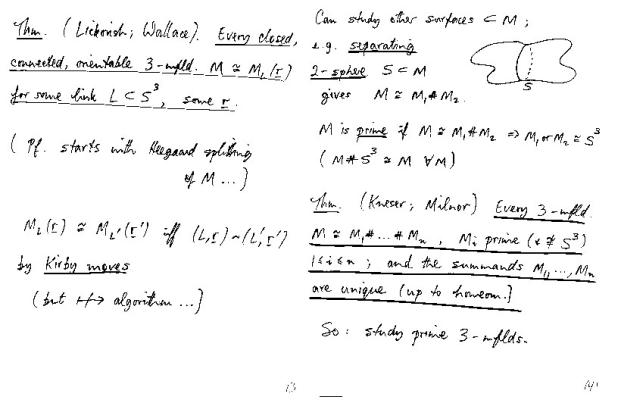 Thm. (Lickorish; Wallace). Every closed,
connected, orientable 3-mfld. M ≅ M_L(r)
for some link L ⊂ S³, some r.
(Pf. starts with Heegaard splitting
of M ...)
M_L(r) ≅ M_L'(r') iff (L,r) ~ (L',r')
by Kirby moves
(but +/→ algorithm ...)
13
Can study other surfaces ⊂ M;
e.g. separating
2-sphere S ⊂ M
gives M ≅ M₁ # M₂.
S
M is prime if M ≅ M₁ # M₂ ⇒ M₁ or M₂ ≅ S³
(M # S³ ≅ M ∀M)
Thm. (Kneser; Milnor) Every 3-mfld.
M ≅ M₁ # ... # Mₙ, Mᵢ prime (& ≇ S³)
1≤i≤n; and the summands M₁, ..., Mₙ
are unique (up to homeom.)
So: study prime 3-mflds.
14